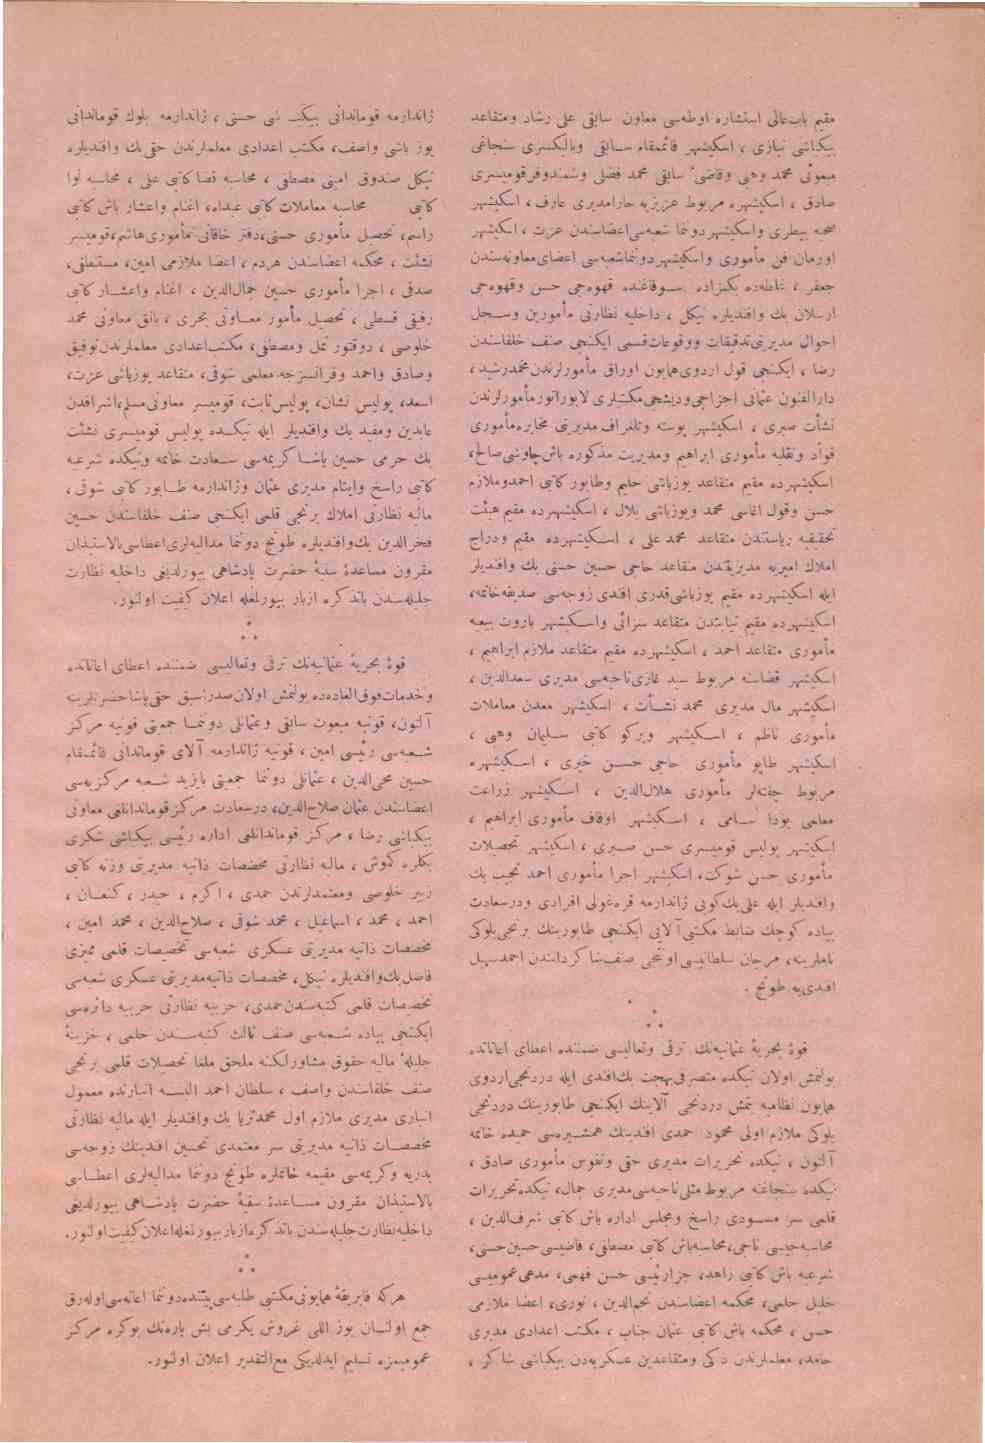 مقیم باب‌عالی استشاره اوطه‌سی معاون سابقی علی رشاد ومتقاعد
بیکباشی نیازی ، اسکیشهر قائممقام سابقی وبالیکسری سنجاغی
مبعوثی محمد وهبی وقاضیٔ سابقی محمد فضلی وشمندوفر قومیسری
صادق ، اسکیشهره مربوط عزیزیه حارا مدیری عارف ، اسکیشهر
صحیه بیطری واسکیشهر دوننما شعبه‌سی اعضاسندن عزت ، اسکیشهر
اورمان فن مأموری واسکیشهر دوننما شعبه‌سی اعضای معاونه‌سندن
جعفر ، غلطه‌ده بکزاده سوقاغنده قهوه‌جی حسن وقهوه‌جی
ارسلان بك وافندیلره نیکل ، داخلیه نظارتی مأمورین وسجل
احوال مدیریتی تدقیقات ووقوعات قسمی ایکنجی صنف خلفاسندن
رضا ، ایکنجی قول اردوی همایون اوراق مأمورلرندن محمد رشید ،
دارالفنون عثمانی اجزاجی ودیشجی مکتبلری لابوراتور مأمورلرندن
نشأت صبری ، اسکیشهر پوسته وتلغراف مدیریتی مخابره مأموری
فواد ونقلیه مأموری ابراهیم ومدیریت مذکوره باش چاوشی صالح ،
اسکیشهرده مقیم متقاعد یوزباشی حلیم وطابور کاتبی احمد وملازم
حسن وقول اغاسی محمد ویوزباشی بلال ، اسکیشهرده مقیم هیئت
تحقیقیه ریاستندن متقاعد محمد علی ، اسکیشهرده مقیم ودراج
املاك امیریه مدیریتندن متقاعد حاجی حسین حسنی بك وافندیلر
ایله اسکیشهرده مقیم یوزباشی قدری افندی زوجه‌سی صدیقه خانمه ،
اسکیشهرده مقیم نیابتدن متقاعد سزائی واسکیشهر باروت بیعیه
مأموری متقاعد احمد ، اسکیشهرده مقیم متقاعد ملازم ابراهیم ،
اسکیشهر قضاسنه مربوط سید غازی ناحیه‌سی مدیری سعدالدین ،
اسکیشهر مال مدیری محمد نشأت ، اسکیشهر معدن معاملات
مأموری ناظم ، اسکیشهر ویرکو کاتبی سلیمان وهبی ،
اسکیشهر طاپو مأموری حاجی حسن خیری ، اسکیشهره
مربوط چفتلر مأموری هلال‌الدین ، اسکیشهر زراعت
معلمی سامی ، اسکیشهر اوقاف مأموری ابراهیم ،
اسکیشهر پولیس قومیسری حسن صبری ، اسکیشهر تحصیلات
مأموری حسن شوکت ، اسکیشهر اجرا مأموری احمد نجیب بك
وافندیلر ایله علی بك کویی ژاندارمه قره‌غولی افرادی ودرسعادت
پیاده کوچك ضابط مکتبی آلایی ایکنجی طابورینك برنجی بلوکی
نامارینه ، مرجان سلطانیسی اوچنجی صنف شاکرداندن احمد سهیل
افندی‌یه طونج .
*
* *
قوهٔ بحریهٔ عثمانیه‌نك ترقی وتعالیسی ضمننده اعطای اعاناتده
بولنمش اولان نیکده متصرفی بهجت بك افندی ایله دردنجی اردوی
همایون نظامیه یتمش دردنجی آلاینك ایکنجی طابورینك دردنجی
بلوکی ملازم اولی محمود احمدی افندینك همشیره‌سی حمیده خانمه
آلتون ، نیکده تحریرات مدیری حقی ونفوس مأموری صادق ،
نیکده سنجاغنه مربوط ملی ناحیه‌سی مدیری جمال ، نیکده تحریرات
قلمی سر مسودی راسخ ومجلس اداره باش کاتبی شرف‌الدین ،
محاسبه‌جیسی ناجی ، محاسبه باش کاتبی مصطفی ، قاضیسی حسین حسنی ،
شرعیه باش کاتبی زاهد ، جزا رئیسی حسن فهمی ، مدعی عمومیسی
خلیل حلمی ، محکمه اعضاسندن نجم‌الدین ، نوری ، اعضا ملازمی
حسن ، محکمه باش کاتبی عثمان جناب ، مکتب اعدادی مدیری
حامد ، معلملرندن ذکی ومتقاعدین عسکریه‌دن بیکباشی شاکر ،
ژاندارمه قوماندانی بیکباشی حسنی ، ژاندارمه بلوك قوماندانی
یوز باشی واصف ، مکتب اعدادی معلملرندن حقی بك وافندیلره
نیکل صندوق امینی مصطفی ، محاسبه قضا کاتبی علی ، محاسبه لوا
کاتبی محاسبه معاملات کاتبی عبداء ، اغنام واعشار باش کاتبی
راسم ، تحصیل مأموری حسنی ، دفتر خاقانی مأموری هاشم ، قومیسر
نشئت ، محکمه اعضاسندن هردم ، اعضا ملازمی امین ، مستنطقی ،
صدقی ، اجرا مأموری حسین جمال‌الدین ، اغنام واعشار کاتبی
رفیق قسطی ، تحصیل مأمور معاونی بحری ، بانق معاونی محمد
خلوصی ، دوقتور نحل ومصطفی ، مکتب اعدادی معلملرندن توفیق
وصادق واحمد وفرانسزجه معلمی شوقی ، متقاعد یوزباشی عزت ،
اسعد ، پولیس نشان ، پولیس ثابت ، قومیسر معاونی مسلم ، اشرافدن
عابدین ومفید بك وافندیلر ایله نیکده پولیس قومیسری نشئت
بك حرمی حسین پاشا کریمه‌سی سعادت خانمه ونیکده شرعیه
کاتبی راسخ وایتام مدیری عثمان وژاندارمه طابور کاتبی شوقی ،
مالیه نظارتی املاك برنجی قلمی ایکنجی صنف خلفاسندن حسین
فخرالدین بك وافندیلره طونج دوننما مدالیه‌لری اعطاسی بالاستیذان
مقرون مساعدهٔ سنیهٔ حضرت پادشاهی بیورلدیغی داخلیه نظارت
جلیله‌سندن باتذکره ازبار بیورلمغله اعلان کیفیت اولنور.
*
* *
قوهٔ بحریهٔ عثمانیه‌نك ترقی وتعالیسی ضمننده اعطای اعاناتده
وخدمات فوق‌العاده‌ده بولنمش اولان صدر اسبق حقی پاشا حضرتلرینه
آلتون ، قونیه مبعوث سابقی وعثمانلی دوننما جمعیتی قونیه مرکز
شعبه‌سی رئیسی امین ، قونیه ژاندارمه آلای قوماندانی قائممقام
حسین محی‌الدین ، عثمانلی دوننما جمعیتی بایزید شعبه مرکزیه‌سی
اعضاسندن عثمان صلاح‌الدین ، درسعادت مرکز قوماندانلغی معاونی
بیکباشی رضا ، مرکز قوماندانلغی اداره رئیسی بیکباشی شکری
بکلره کموش ، مالیه نظارتی مخصصات ذاتیه مدیریتی وزنه کاتبی
زبیر خلوصی ومعتمدلرندن حمدی ، اکرم ، حیدر ، کنعان ،
احمد ، محمد ، اسماعیل ، محمد شوقی ، صلاح‌الدین ، محمد امین ،
مخصصات ذاتیه مدیریتی عسکری شعبه‌سی تخصیصات قلمی ممیزی
فاضل بك وافندیلره نیکل ، مخصصات ذاتیه مدیریتی عسکری شعبه‌سی
تخصصات قلمی کتبه‌سندن حمدی ، حربیه نظارتی حربیه دائره‌سی
ایکنجی پیاده شعبه‌سی صنف ثالث کتبه‌سندن حلمی ، خزینهٔ
جلیلهٔ مالیه حقوق مشاورلکنه ملحق ملغا تحصیلات قلمی برنجی
صنف خلفاسندن واصف ، سلطان احمد البسه انبارنده معمول
انباری مدیری ملازم اول محمد ثریا بك وافندیلر ایله مالیه نظارتی
مخصصات ذاتیه مدیریتی سر معتمدی تحسین افندینك زوجه‌سی
بدریه وکریمه‌سی مقیمه خانملره طونج دوننما مدالیه‌لری اعطاسی
بالاستیذان مقرون مساعدهٔ سنیهٔ حضرت پادشاهی بیورلدیغی
داخلیه نظارت جلیله‌سندن باتذکره ازبار بیورلمغله اعلان کیفیت اولنور.
*
* *
هرکه فابریقهٔ همایونی مکتبی طلبه‌سی بیننده دوننما اعانه‌سی اوله‌رق
جمع اولنان یوز اللی غروش یکرمی بش پاره‌نك بوکره مرکز
عمومیمزه تسلیم ایدلدیکی مع‌التقدیر اعلان اولنور.